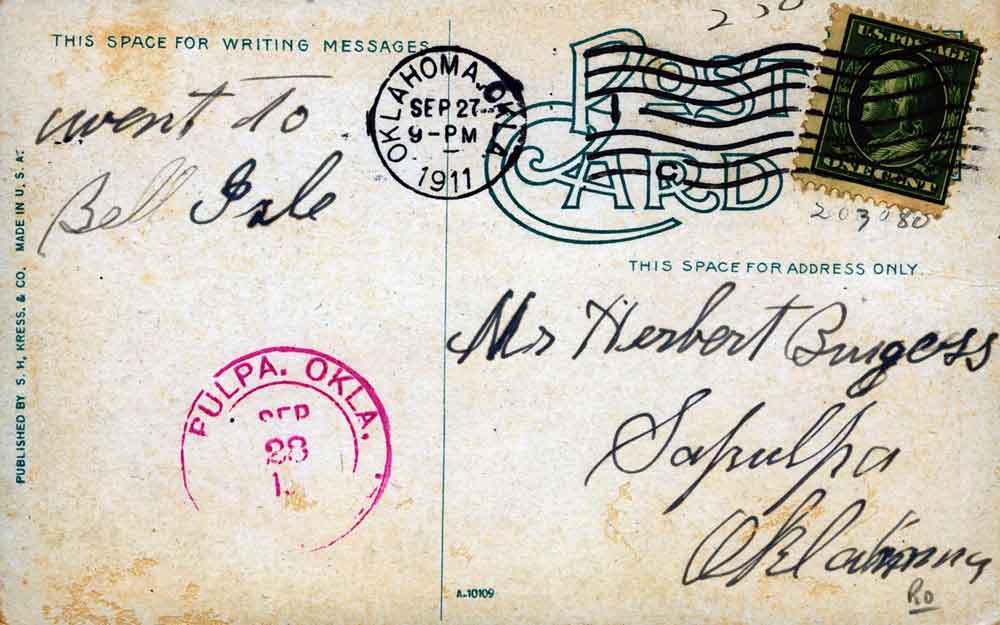 THIS SPACE FOR WRITING MESSAGES
went to
Bell Isle
PUBLISHED BY S. H. KRESS. & CO. MADE IN U. S. A.
PULPA. OKLA.
SEP
28
1
OKLAHOMA, OKLA
SEP 27
9-PM
1911
POST
CARD
U.S. POSTAGE
ONE CENT
203080
THIS SPACE FOR ADDRESS ONLY
Mr Herbert Burgess
Sapulpa
Oklahoma
RO
A-10109